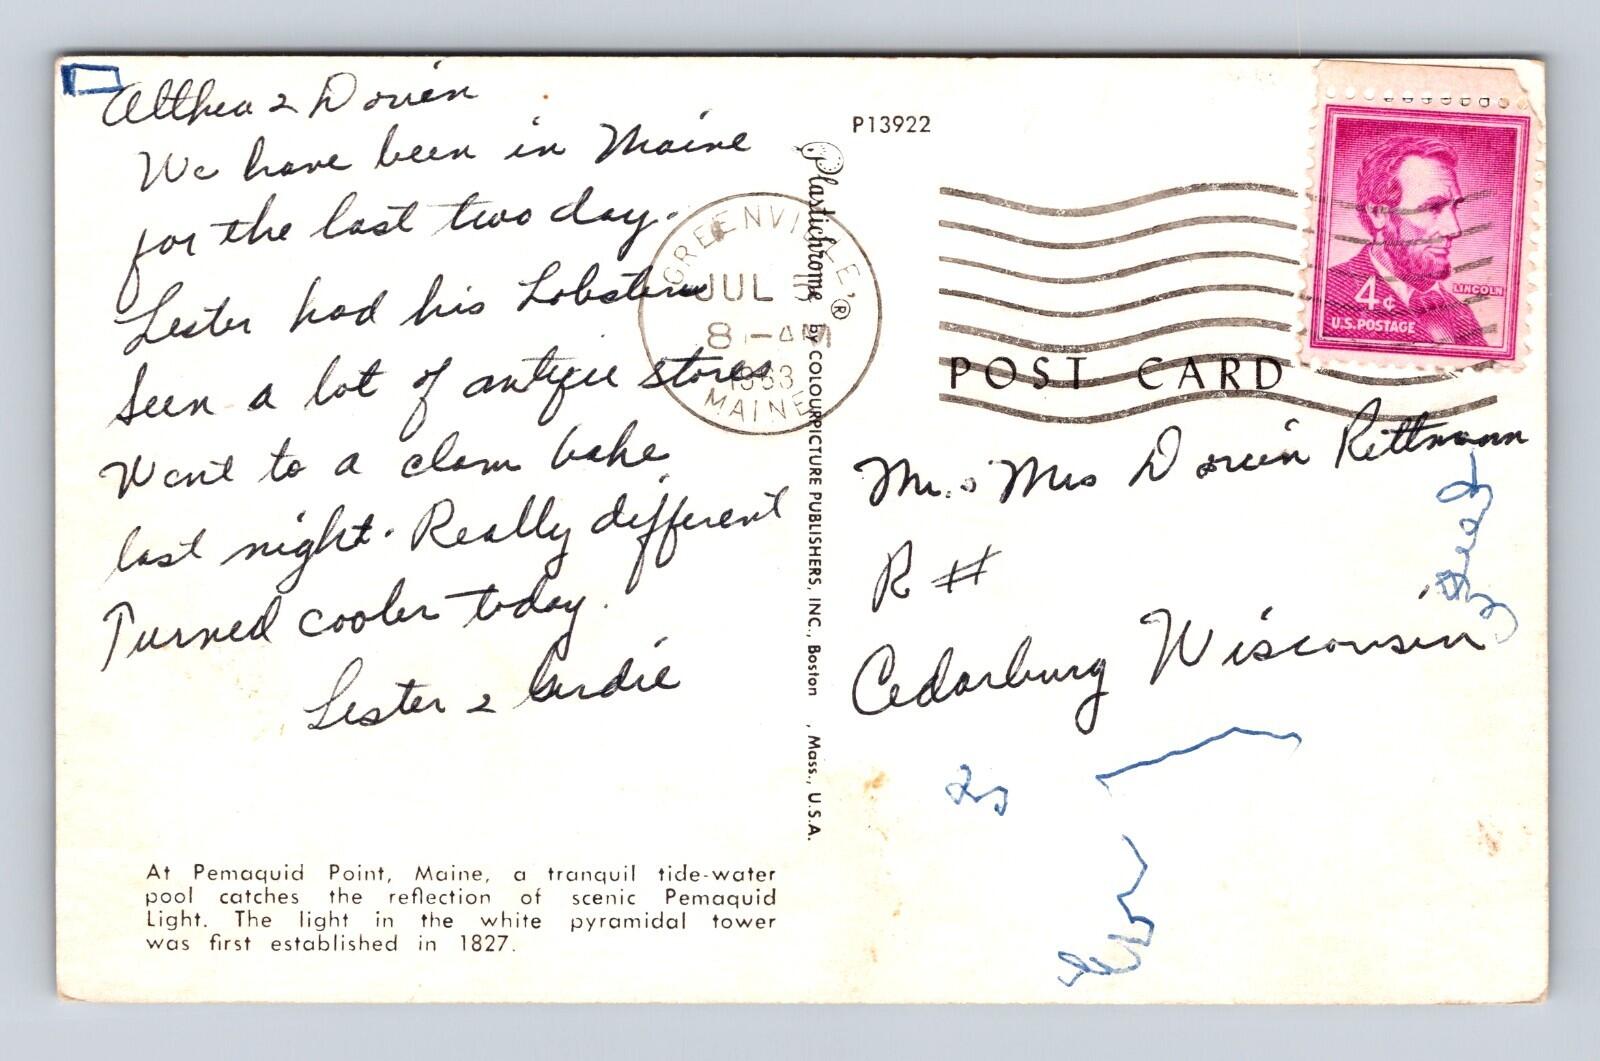 Althea & Dorien
We have been in Maine
for the last two day.
Lester had his Lobsters
Seen a lot of antique stores
Went to a clam bake
last night. Really different
Turned cooler today.
Lester & Gerdie
At Pemaquid Point, Maine, a tranquil tide-water
pool catches the reflection of scenic Pemaquid
Light. The light in the white pyramidal tower
was first established in 1827.
Plastichrome ® by COLOURPICTURE PUBLISHERS, INC., Boston , Mass., U.S.A.
P13922
GREENVILLE,
JUL
8 - AM
1963
MAINE
4¢
LINCOLN
U.S. POSTAGE
POST CARD
Mr. & Mrs Dorien Rittmann
R #
Cedarburg Wisconsin